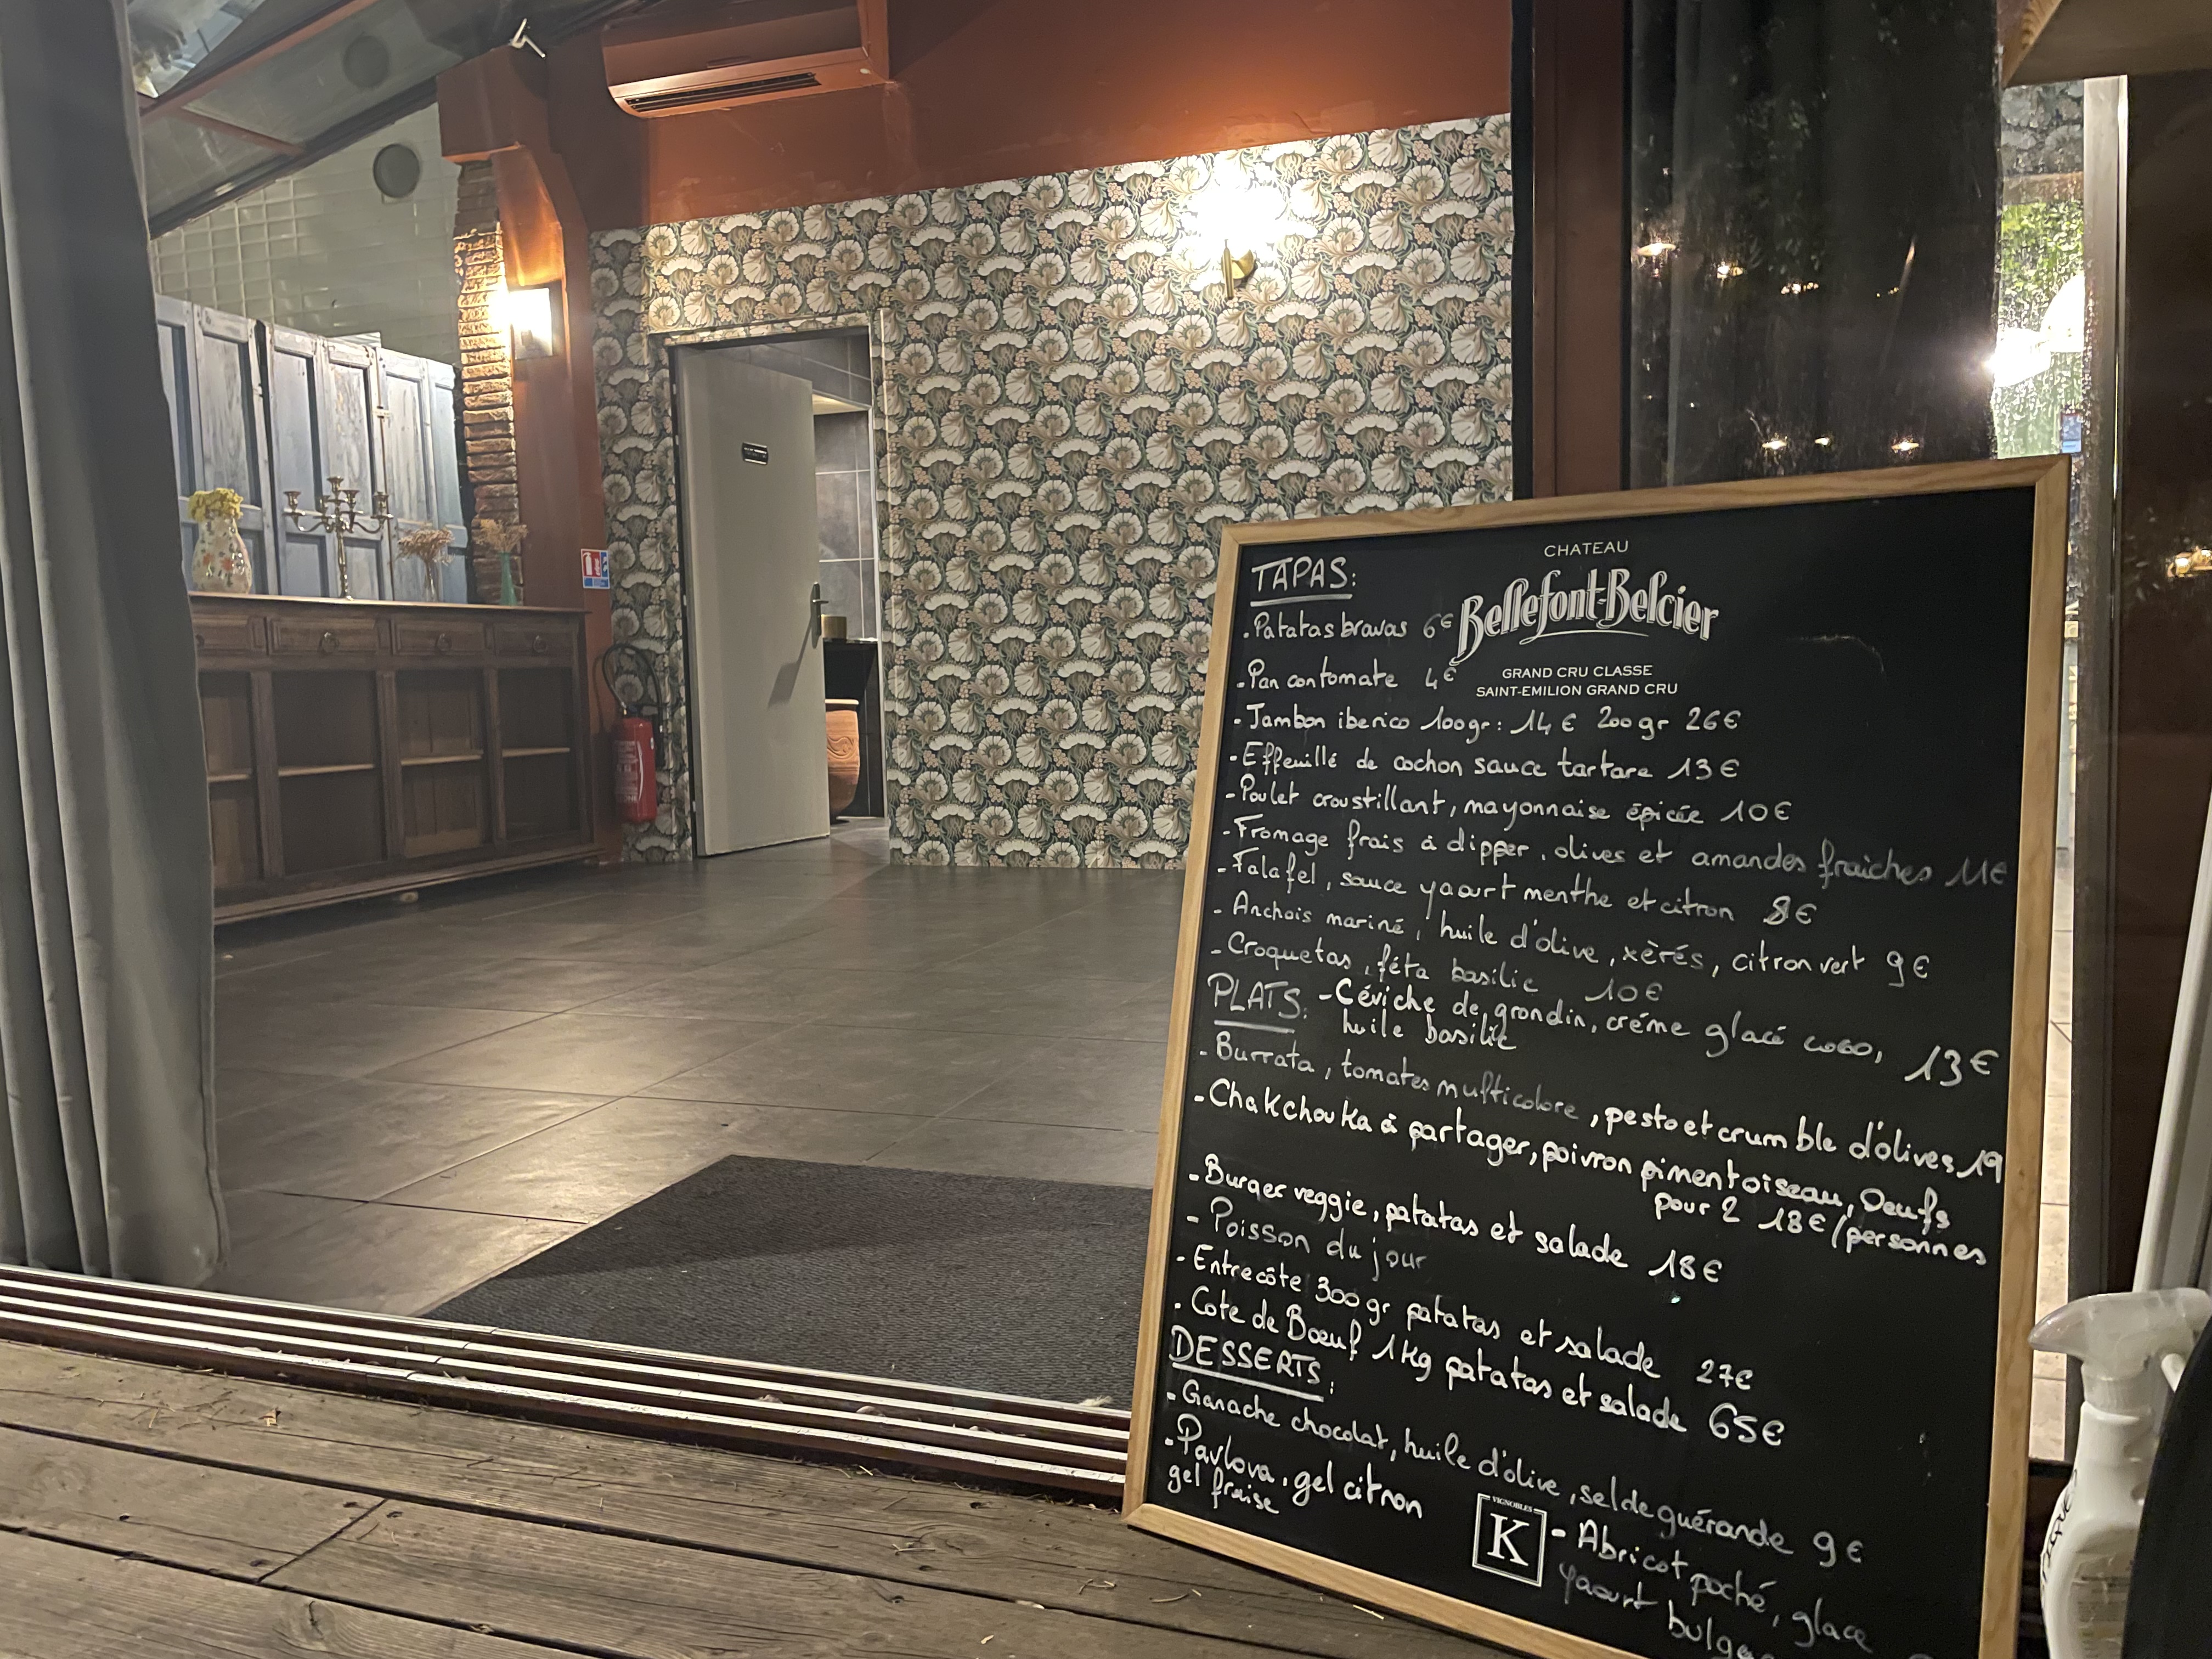 CHATEAU
Bellefont-Belcier
GRAND CRU CLASSE
SAINT-EMILION GRAND CRU
TAPAS:
- Patatas bravas 6€
- Pan con tomate 4€
- Jambon iberico 100gr: 14€ 200gr 26€
- Effeuillé de cochon sauce tartare 13€
- Poulet croustillant, mayonnaise épicée 10€
- Fromage frais à dipper, olives et amandes fraiches 11€
- Falafel, sauce yaourt menthe et citron 8€
- Anchois mariné, huile d'olive, xèrés, citron vert 9€
- Croquetas, féta basilic 10€
PLATS: - Céviche de grondin, créme glacé coco,
huile basilic 13€
- Burrata, tomates multicolore, pesto et crumble d'olives 19
- Chakchouka à partager, poivron piment oiseau, Oeufs
pour 2 18€/personnes
- Burger veggie, patatas et salade 18€
- Poisson du jour
- Entrecôte 300gr patatas et salade 27€
- Cote de Bœuf 1kg patatas et salade 65€
DESSERTS:
- Ganache chocolat, huile d'olive, sel de guérande 9€
- Pavlova, gel citron
gel fraise
VIGNOBLES
K
- Abricot poché, glace
yaourt